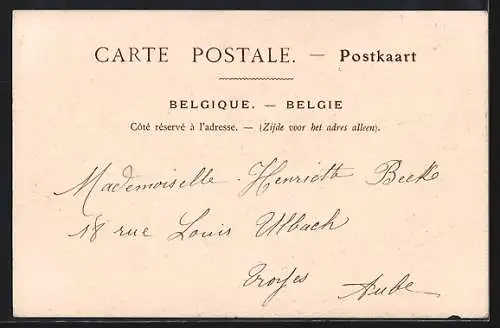 CARTE POSTALE. — Postkaart
BELGIQUE. — BELGIE
Côté réservé à l'adresse. — (Zijde voor het adres alleen).
Mademoiselle Henrieth Becke
18 rue Louis Ulbach
Troyes
Aube